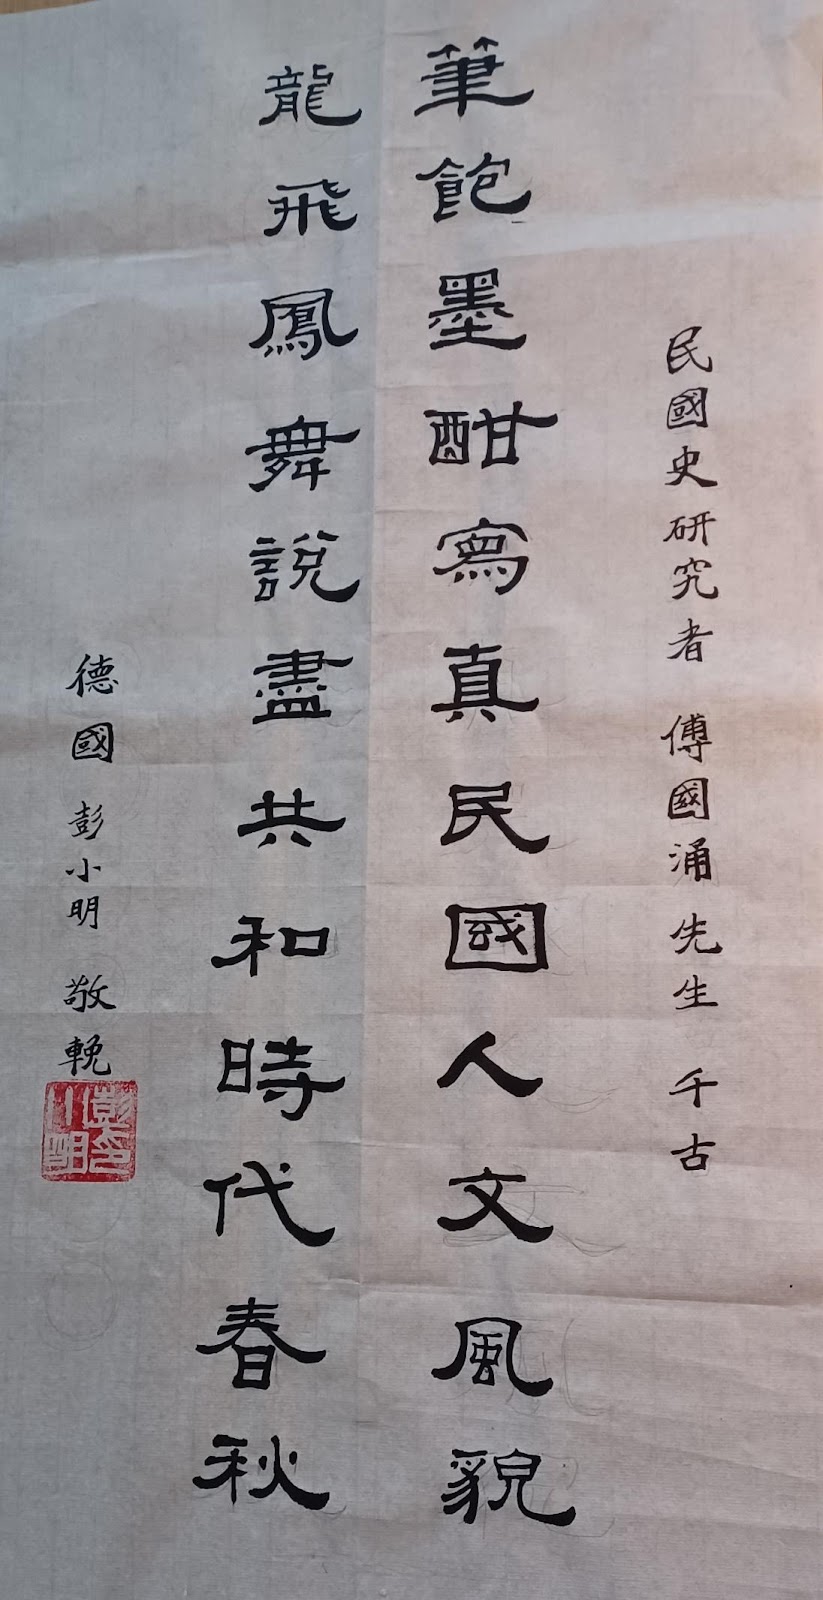 民國史研究者 傅國涌先生 千古
筆飽墨酣寫真民國人文風貌
龍飛鳳舞說盡共和時代春秋
德國 彭小明 敬輓
彭小明印